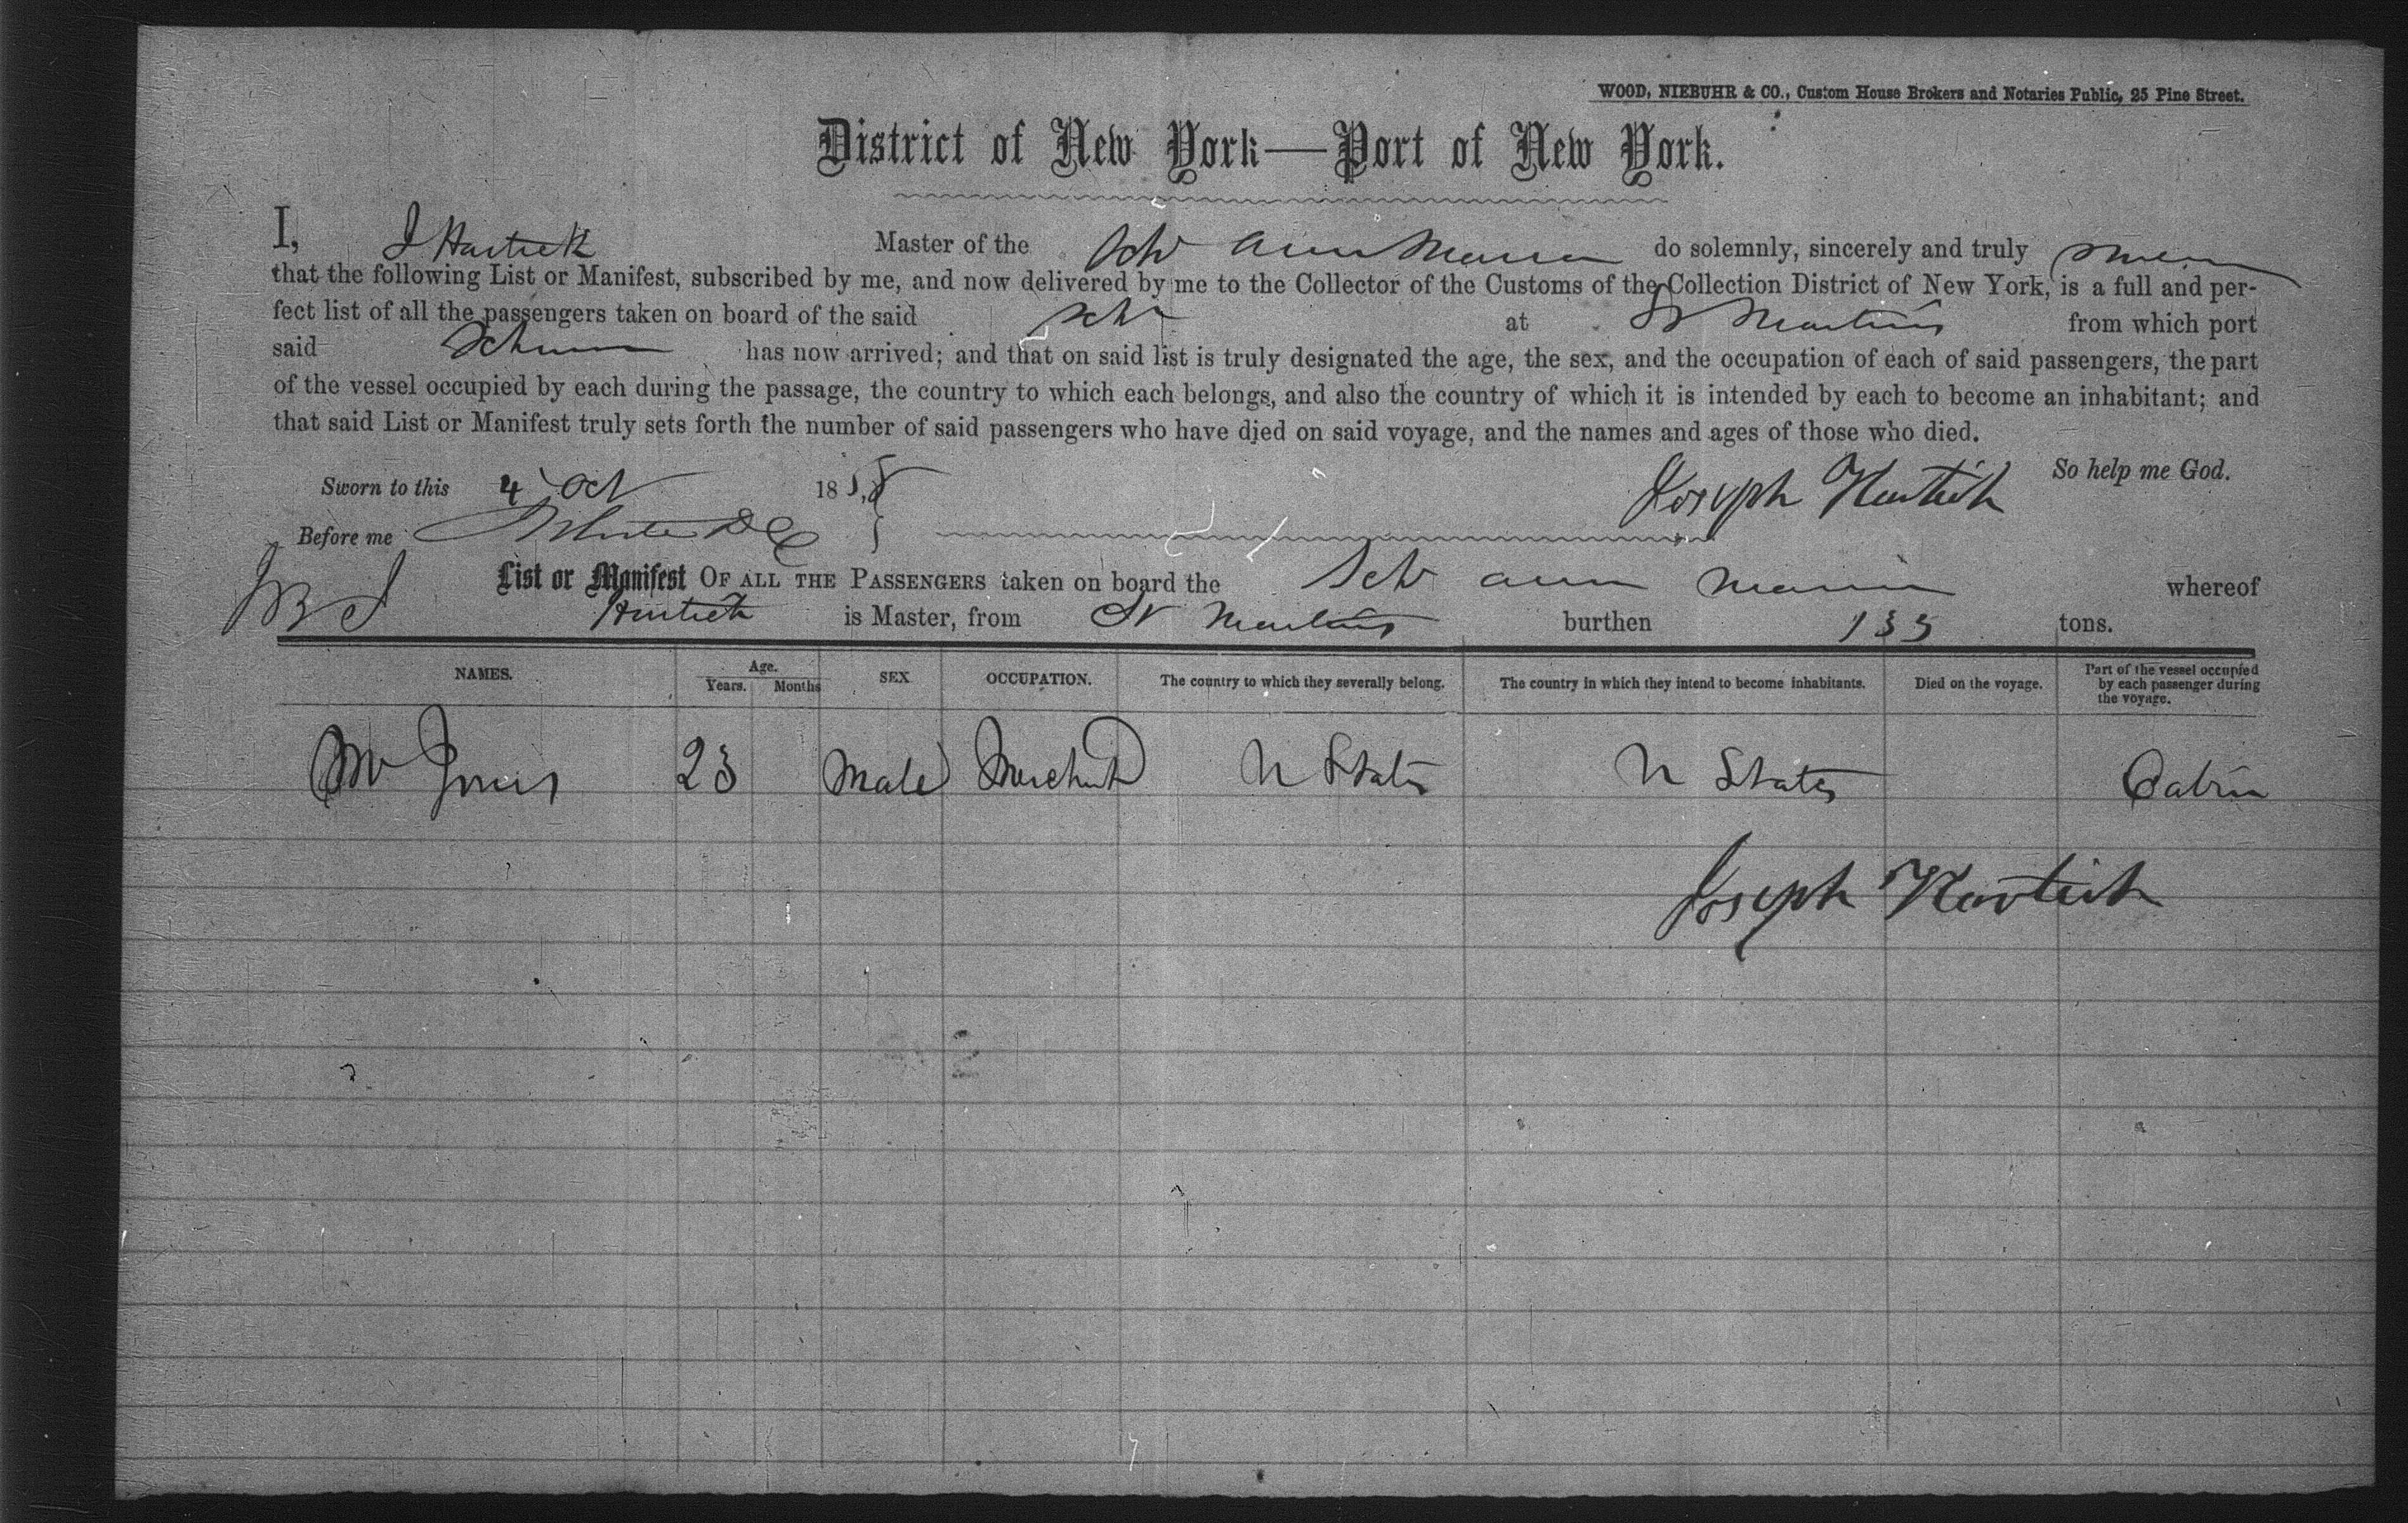 WOOD, NIEBUHR & CO., Custom House Brokers and Notaries Public, 25 Pine Street.
District of New York—Port of New York.
I, J Hartick Master of the Schr Ann Maria do solemnly, sincerely and truly swear
that the following List or Manifest, subscribed by me, and now delivered by me to the Collector of the Customs of the Collection District of New York, is a full and per-
fect list of all the passengers taken on board of the said Schr at St Martins from which port
said Schooner has now arrived; and that on said list is truly designated the age, the sex, and the occupation of each of said passengers, the part
of the vessel occupied by each during the passage, the country to which each belongs, and also the country of which it is intended by each to become an inhabitant; and
that said List or Manifest truly sets forth the number of said passengers who have died on said voyage, and the names and ages of those who died.
So help me God.
Sworn to this 4 Oct 1858 Joseph Hartick
Before me
List or Manifest OF ALL THE PASSENGERS taken on board the Schr Ann Maria whereof
Hartick is Master, from St Martins burthen 133 tons.
NAMES. Age. Years. Months SEX OCCUPATION. The country to which they severally belong. The country in which they intend to become inhabitants. Died on the voyage. Part of the vessel occupied by each passenger during the voyage.
Mr Jones 23 Male Merchant U States U States Cabin
Joseph Hartick